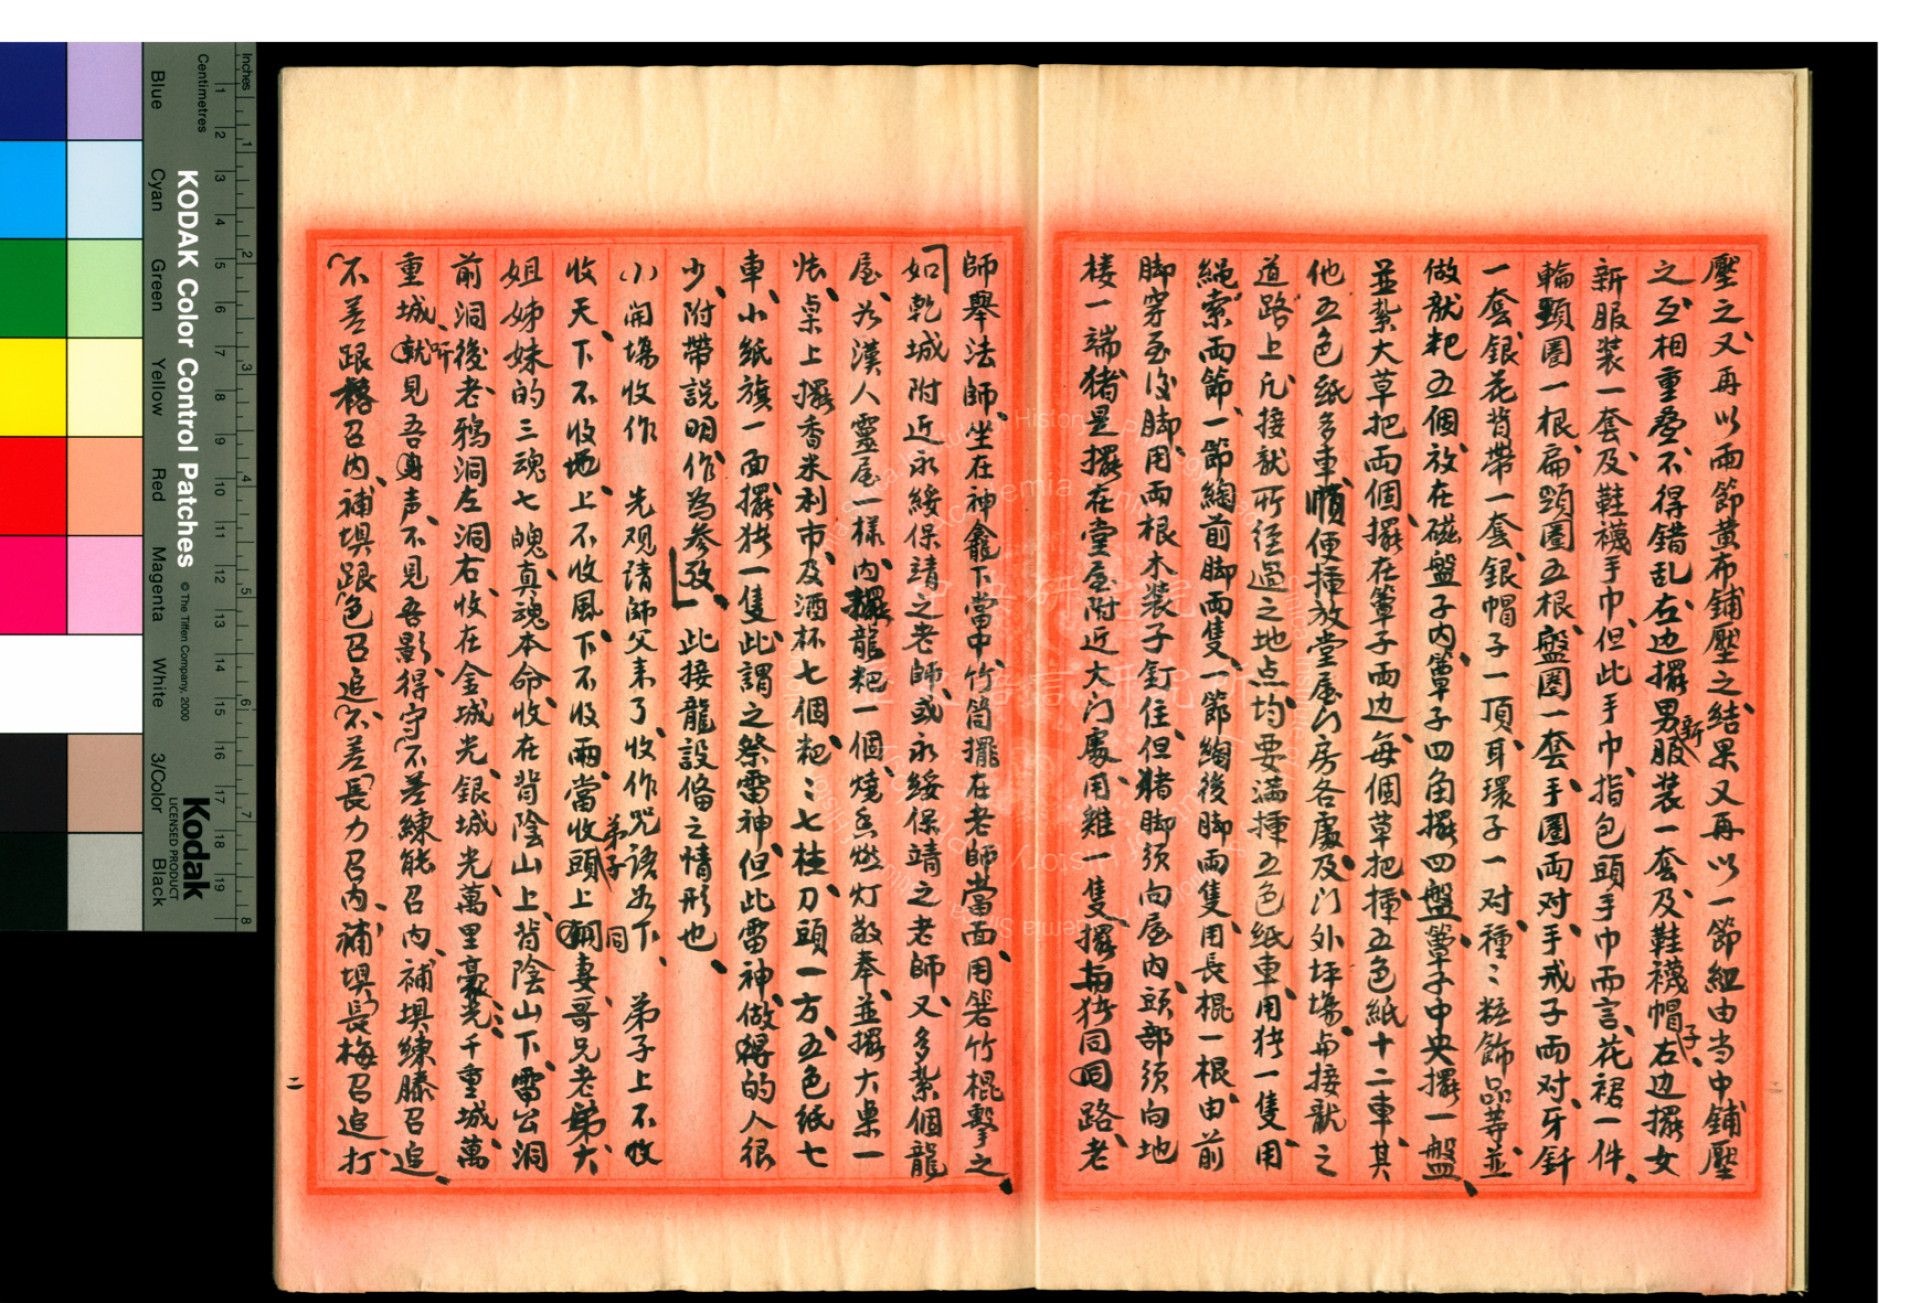 壓之、又再以兩節黃布鋪壓之、結果又再以一節紐由当中鋪壓
之、互相重叠、不得錯乱、左边擺男新服装一套、及鞋襪帽子、右边擺女
新服装一套、及鞋襪手巾、但此手巾、指包頭手巾而言、花裙一件、
輪頸圈一根、扁頸圈五根、盤圈一套、手圈両对、手戒子両对、牙釺
一套、銀花背帶一套、銀帽子一頂、耳環子一对、種〻粧飾品等、並
做龍粑五個、放在磁盤子内、簟子四角擺四盤、簟子中央擺一盤、
並紮大草把両個、擺在簟子両边、每個草把、插五色紙十二車、其
他五色紙多車、順便插放堂屋、门房各處、及门外坪場、與接龍之
道路上、凡接龍所徑過之地点、均要满插五色紙車、用猪一隻、用
繩索両節、一節綯前脚両隻、一節綯後脚両隻、用長棍一根、由前
脚穿至後脚、用両根木装子釘住、但猪脚须向屋内、頭部须向地
楼一端、猪是擺在堂屋附近大门處、用雞一隻、擺與猪同路、老
師舉法師、坐在神龕下當中、竹筒擺在老師當面、用箬竹棍擊之、
如乾城附近永綏保靖之老師、或永綏保靖之老師、又多紮個龍
屋、为漢人靈屋一樣、内擺龍粑一個、燒香燃灯敬奉、並擺大桌一
張、桌上擺香米利市、及酒杯七個、粑〻七柱、刀頭一方、五色紙七
車、小紙旗一面、擺猪一隻、此謂之祭雷神、但此雷神、做得的人很
少、附帶説明、作為参攷、此接龍設俻之情形也、
小開場收作　先观請師父来了、收作咒语为下、弟子上不收
收天、下不收地、上不收風、下不收雨、當收弟子頭上、同妻哥兄老弟、大
姐姊妹的三魂七魄、真魂本命、收在背陰山上、背陰山下、雷公洞
前洞後、老鴉洞左洞右、收在金城光、銀城光、萬里豪光、千重城、萬
重城、听見吾声、不見吾影、得守、不差練能召内、補埧練滕召追、
不差跟格召内、補埧跟色召追、不差長力召内、補埧長梅召追、打
二
KODAK Color Control Patches
© The Tiffen Company, 2000
Kodak
LICENSED PRODUCT
Inches
Centimetres
Blue
Cyan
Green
Yellow
Red
Magenta
White
3/Color
Black